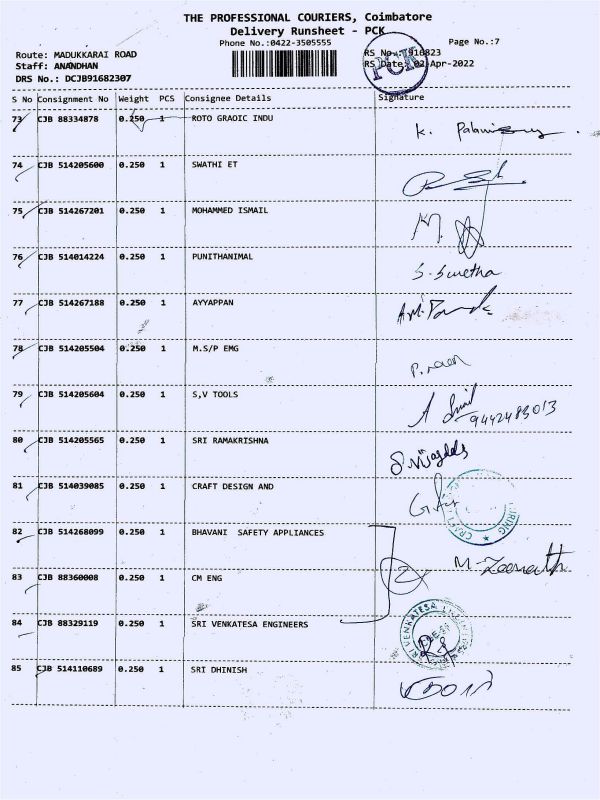 THE PROFESSIONAL COURIERS, Coimbatore
Delivery Runsheet - PCK
Phone No.:0422-3505555
Page No.:7
Route: MADUKKARAI ROAD
RS No.:
Staff: ANANDHAN
RS Date: 02-Apr-2022
DRS No.: DCJB91682307
PCK
S No Consignment No Weight PCS Consignee Details Signature
73 CJB 88334878 0.250 1 ROTO GRAOIC INDU K.
74 CJB 514205600 0.250 1 SWATHI ET
75 CJB 514267201 0.250 1 MOHAMMED ISMAIL M.
76 CJB 514014224 0.250 1 PUNITHANIMAL S-Swetha
77 CJB 514267188 0.250 1 AYYAPPAN
78 CJB 514205504 0.250 1 M.S/P EMG
79 CJB 514205604 0.250 1 S,V TOOLS 9442483013
80 CJB 514205565 0.250 1 SRI RAMAKRISHNA
81 CJB 514039085 0.250 1 CRAFT DESIGN AND
82 CJB 514268099 0.250 1 BHAVANI SAFETY APPLIANCES
83 CJB 88360008 0.250 1 CM ENG M-Zeenath
84 CJB 88329119 0.250 1 SRI VENKATESA ENGINEERS
85 CJB 514110689 0.250 1 SRI DHINISH